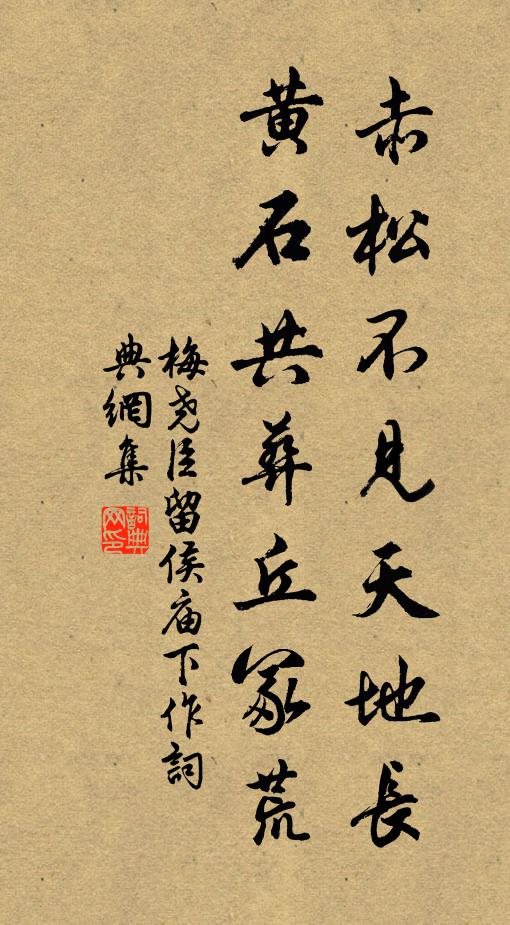 赤松不見天地長
黄石共葬丘冢荒
梅尧臣留侯庙下作詞
典網集
詞典网印